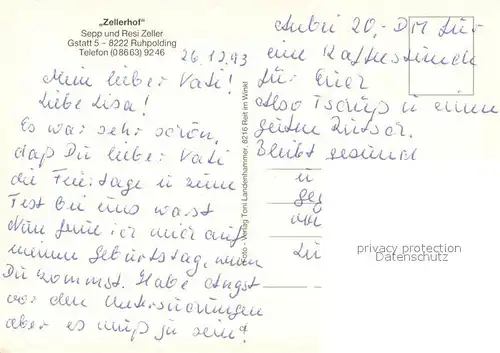 „Zellerhof"
Sepp und Resi Zeller
Gstatt 5 – 8222 Ruhpolding
Telefon (08663) 9246
26.12.93
Mein lieber Vati!
Liebe Lisa!
Es war sehr schön,
daß Du lieber Vati
die Feiertage u zum
Fest bei uns warst
Nun freue ich mich auf
meinen Geburtstag, wenn
Du kommst. Habe Angst
vor den Untersuchungen
aber es muß ja sein!
Foto - Verlag Toni Landenhammer, 8216 Reit im Winkl
Anbei 20,- DM für
eine Kaffeestunde
für Euch
Also Tschüß u einen
guten Rutsch.
Bleibt gesund
u
privacy protection
Datenschutz